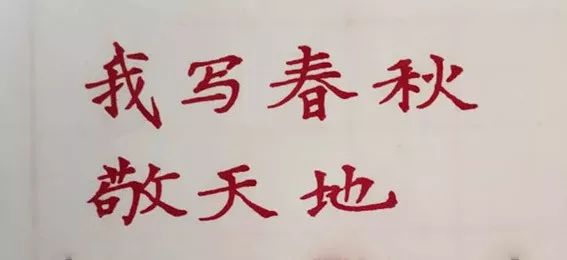 我写春秋
敬天地